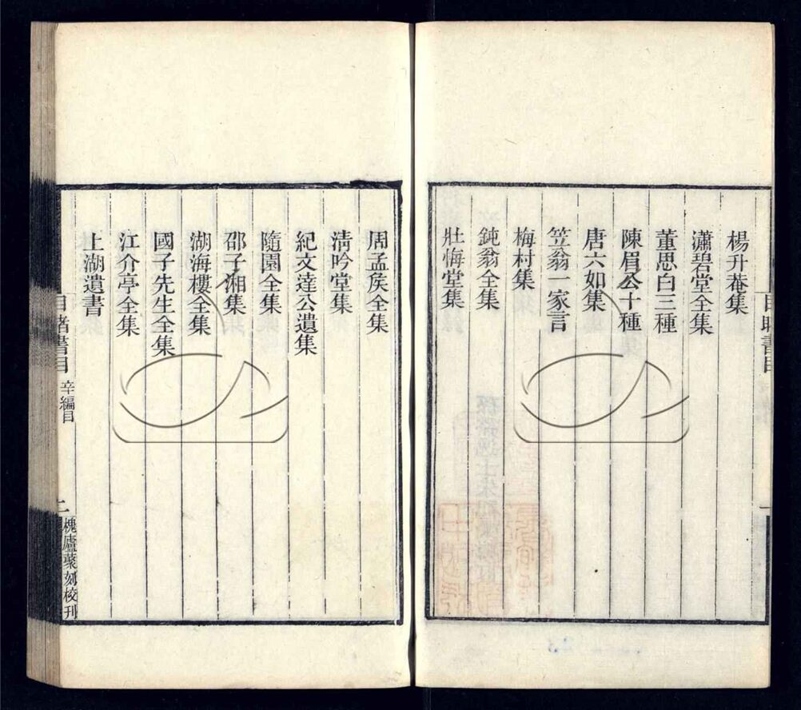 楊升菴集
瀟碧堂全集
董思白三種
陳眉公十種
唐六如集
笠翁一家言
梅村集
鈍翁全集
壯悔堂集
周孟侯全集
清吟堂集
紀文達公遺集
隨園全集
邵子湘集
湖海樓全集
國子先生全集
江介亭全集
上湖遺書
目睹書目
辛編目
二
槐廬叢刻校刊